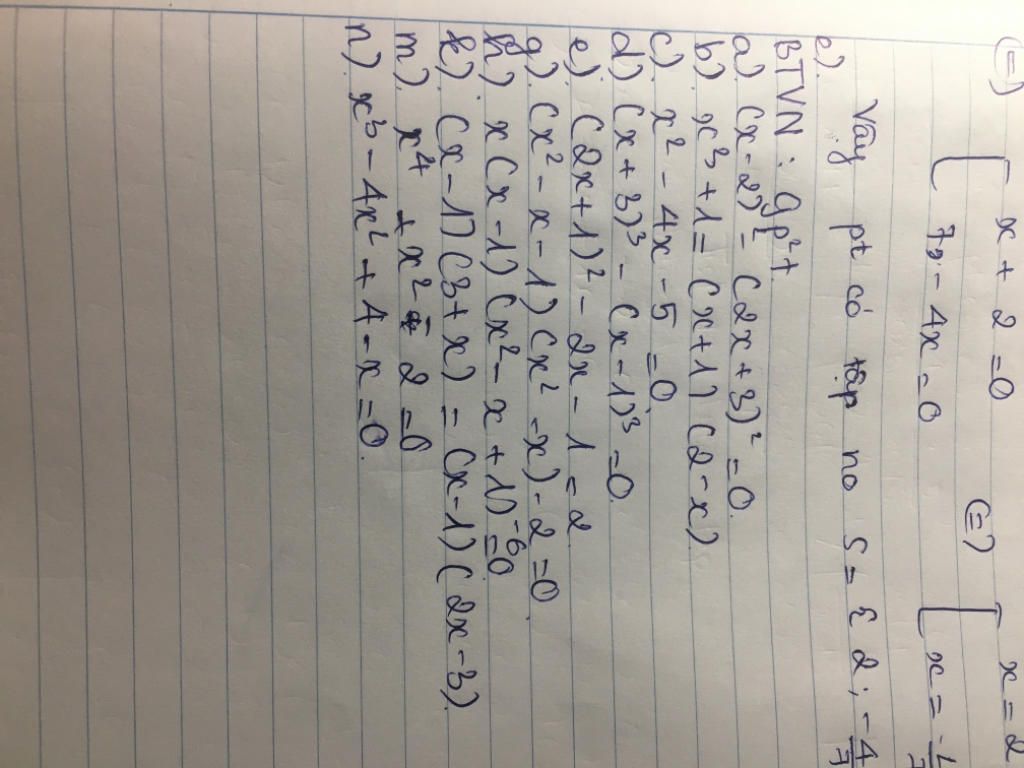 (=) [ x + 2 = 0 (=) [ x = 2
7x - 4x = 0 x = -
e). Vậy pt có tập no S = { 2 ; -4/7
BTVN : gp²t
a) (x-2)² - (2x+3)² = 0.
b). x³ + 1 = (x+1)(2-x)
c). x² - 4x - 5 = 0
d) (x+3)³ - (x-1)³ = 0.
e). (2x+1)² - 2x - 1 = 2
g). (x² - x - 1)(x² - x) - 2 = 0
h) x(x-1)(x² - x + 1) - 6 = 0
k). (x-1)(3+x) = (x-1)(2x-3)
m). x⁴ + x² - 2 = 0
n). x³ - 4x² + 4 - x = 0.